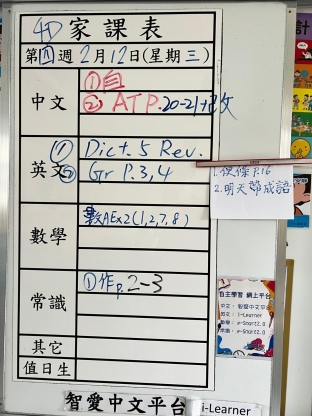 4D 家課表
第四週 2月12日(星期三)
中文
① 自
② ATP.20-21+改
英文
① Dict. 5 Rev.
② Gr P.3,4
1. P.16
2. 明天帶成語
數學
數AEx2(1,2,7,8)
常識
① 作p.2-3
自主學習 網上平台
中文: 智愛中文平台
英文: i-Learner
數學: e-Smart2.0
常識: e-Smart2.0
其它
值日生
智愛中文平台
i-Learner
計